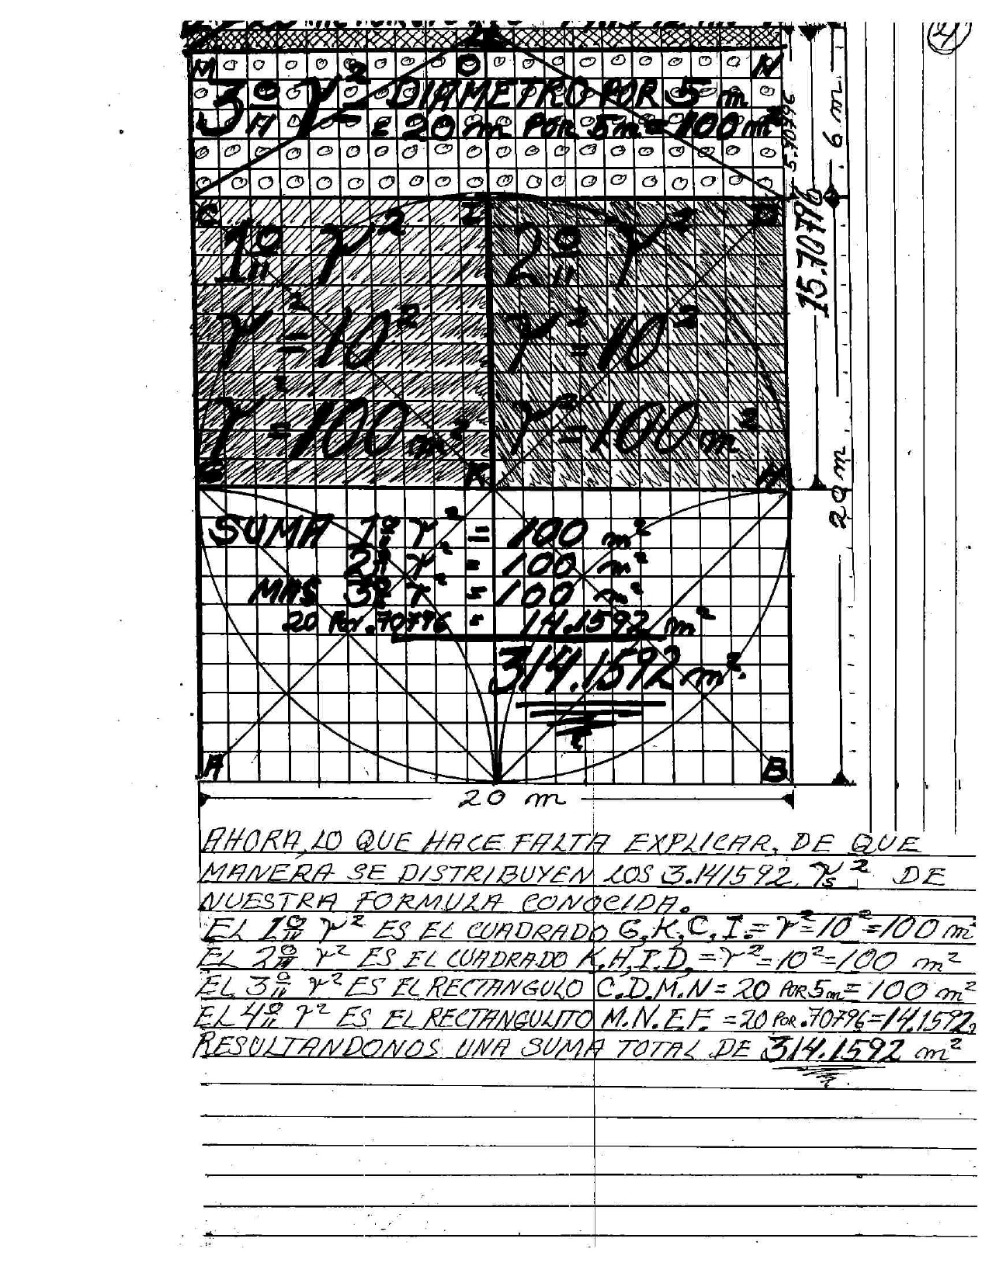 4
M O N
3º r² = DIAMETRO POR 5 m
= 20 m POR 5m = 100 m²
5.70796
6 m
C I D
1º r² 2º r²
15.70796
r² = 10² r² = 10²
r² = 100 m² r² = 100 m²
G K H
20 m
SUMA 1º r² = 100 m²
2º r² = 100 m²
MAS 3º r² = 100 m²
20 POR .70796 = 14.1592 m²
314.1592 m².
A B
20 m
AHORA, LO QUE HACE FALTA EXPLICAR, DE QUE
MANERA SE DISTRIBUYEN LOS 3.141592 rs² DE
NUESTRA FORMULA CONOCIDA.
EL 1º r² ES EL CUADRADO G,K,C,I.= r²=10²=100 m²
EL 2º r² ES EL CUADRADO K.H.I.D.=r²=10²=100 m²
EL 3º r² ES EL RECTANGULO C.D.M.N = 20 POR 5m = 100 m²
EL 4º r² ES EL RECTANGULITO M.N.E.F. = 20 POR .70796=14.1592,
RESULTANDONOS UNA SUMA TOTAL DE 314.1592 m²